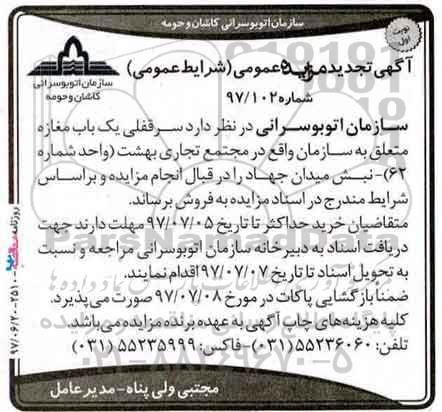 سازمان اتوبوسرانی کاشان و حومه
نوبت اول
آگهی تجدید مزایده عمومی (شرایط عمومی)
شماره ۹۷/۱۰۲
سازمان اتوبوسرانی
کاشان و حومه
سازمان اتوبوسرانی در نظر دارد سرقفلی یک باب مغازه
متعلق به سازمان واقع در مجتمع تجاری بهشت (واحد شماره
۶۲)-نبش میدان جهاد را در قبال انجام مزایده و براساس
شرایط مندرج در اسناد مزایده به فروش برساند.
متقاضیان خرید حداکثر تا تاریخ ۹۷/۰۷/۰۵ مهلت دارند جهت
دریافت اسناد به دبیرخانه سازمان اتوبوسرانی مراجعه و نسبت
به تحویل اسناد تا تاریخ ۹۷/۰۷/۰۷ اقدام نمایند.
ضمنا بازگشایی پاکات در مورخ ۹۷/۰۷/۰۸ صورت می‌پذیرد.
کلیه هزینه‌های چاپ آگهی به عهده برنده مزایده می‌باشد.
تلفن: ۵۵۲۳۶۰۶۰(۰۳۱)-فاکس: ۵۵۲۳۵۹۹۹ (۰۳۱)
مجتبی ولی پناه-مدیرعامل
روزنامه
۹۷/۰۶/۲۰-۲۵۱۰
ParsNamadData
۰۲۱-۸۸۳۴۹۶۷۰-۵